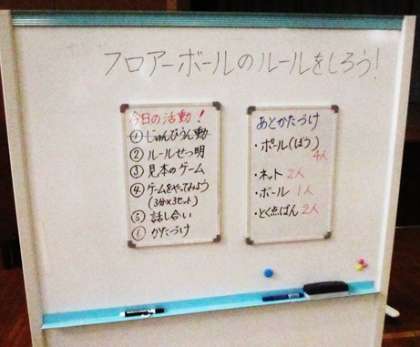 フロアーボールのルールをしろう!
今日の活動!
①じゅんびうん動
②ルールせつ明
③見本のゲーム
④ゲームをやってみよう
(3分×3セット)
⑤話し合い
⑥かたづけ
あとかたづけ
・ポール(ぼう)
4人
・ネット 2人
・ボール 1人
・とく点ばん 2人